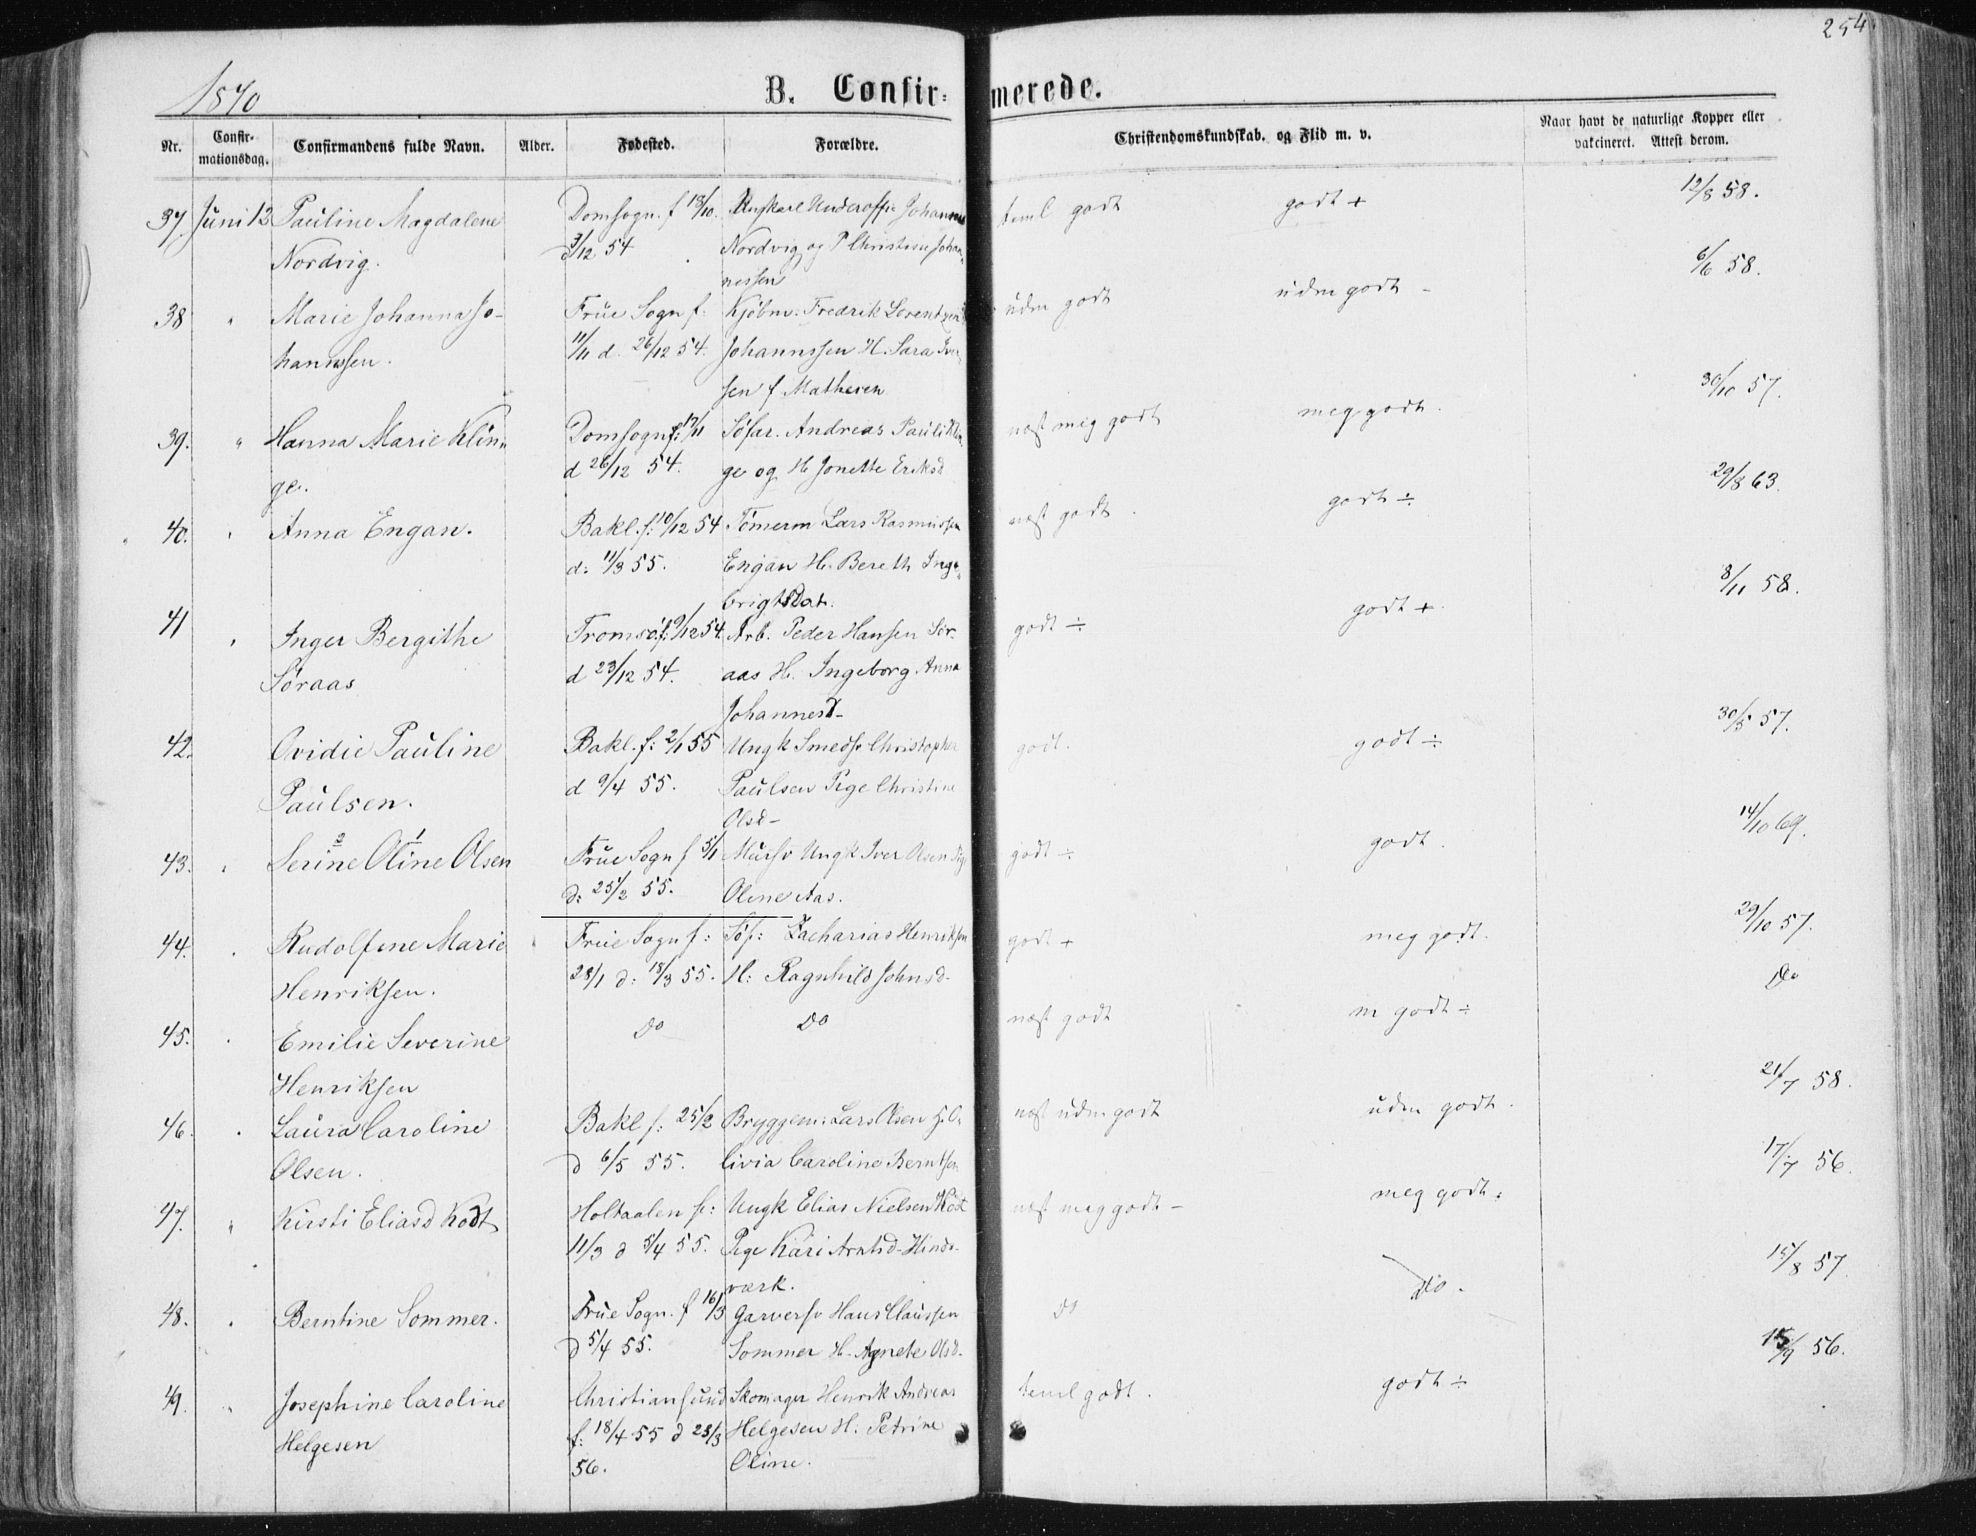 254.
1870
B. Confir-merede.
Nr. Confir-mationsdag. Confirmandens fulde Navn. Alder. Fødested. Forældre. Christendomskundskab. og Flid m. v. Naar havt de naturlige Kopper eller vakcineret. Attest derom.
37 Juni 12 Pauline Magdalene Domsogn. f 13/10. Ungkarl Underoffic Johannes teml godt godt + 12/8 58.
Nordvig. d 3/12 54 Nordvig og P Christine Johan-
nessen
38 " Marie Johanna Jo- Frue Sogn f: Kjöbm: Fredrik Lorentzen udm godt udm godt - 6/6 58.
hannssen. 11/11 d. 26/12 54. Johannssen H. Sara Iver-
sen f Mathesen
39. " Hanna Marie Klin- Domsogn f: 17/11 Söfar. Andreas Pauli Klin- næst meg godt meg godt. 30/10 57.
ge. d 26/12 54. ge og H Jonette Eriksd
40. " Anna Engan. Bakl. f: 10/12 54 Tömerm Lars Rasmussen næst godt. godt ÷ 29/8 63.
d: 11/3 55. Engan H. Bereth Inge-
brigtsdat.
41 " Inger Bergithe Tromsö f: 9/12 54. Arb. Peder Hansen Sör- godt ÷ godt +. 8/11 58.
Söraas d 23/12 54. aas H. Ingeborg Anna
Johannesd-
42. Ovidie Pauline Bakl. f: 2/1 55 Ungk Smedsv Christopher godt. godt ÷ 30/5 57.
Paulsen. d 9/4 55. Paulsen Pige Christine
Olsd-
43. " Serine Oline Olsen Frue Sogn f 5/1 Mursv Ungk Iver Olsen Pig godt ÷ godt. 14/10 69.
2 1
d: 25/2 55. Oline Aas.
44. " Rudolfine Marie Frue Sogn f: Söf: Zacharias Henriksen godt + meg godt. 29/10 57.
Henriksen. 28/1 d: 18/3 55. H: Ragnhild Johnsd-
45. " Emilie Severine Do Do næst godt m godt ÷ Do
Henriksen
46. " Laura Caroline Bakl f: 25/2 Bryggem: Lars Olsen H: O- næst udm godt udm godt. 21/7 58.
Olsen. d 6/5 55. livia Caroline Berntsen
47. " Kirsti EliasdKödt Holtaalen f: Ungk Elias Nielsen Ködt næst meg godt - meg godt: 17/7 56.
11/3 d 5/4 55. Pige Kari Arntsd- Hinds-
værk.
48. " Berntine Sommer. Frue Sogn. f 16/3 Garversv Hans Claussen do do. 15/8 57.
d 5/4 55. Sommer H. Agnete Olsd-
49. " Josephine Caroline Christiansund Skomager Henrik Andreas teml godt. godt ÷ 15/9 56.
Helgesen f: 18/4 55 d 23/3 Helgesen H. Petrine
56. Oline.